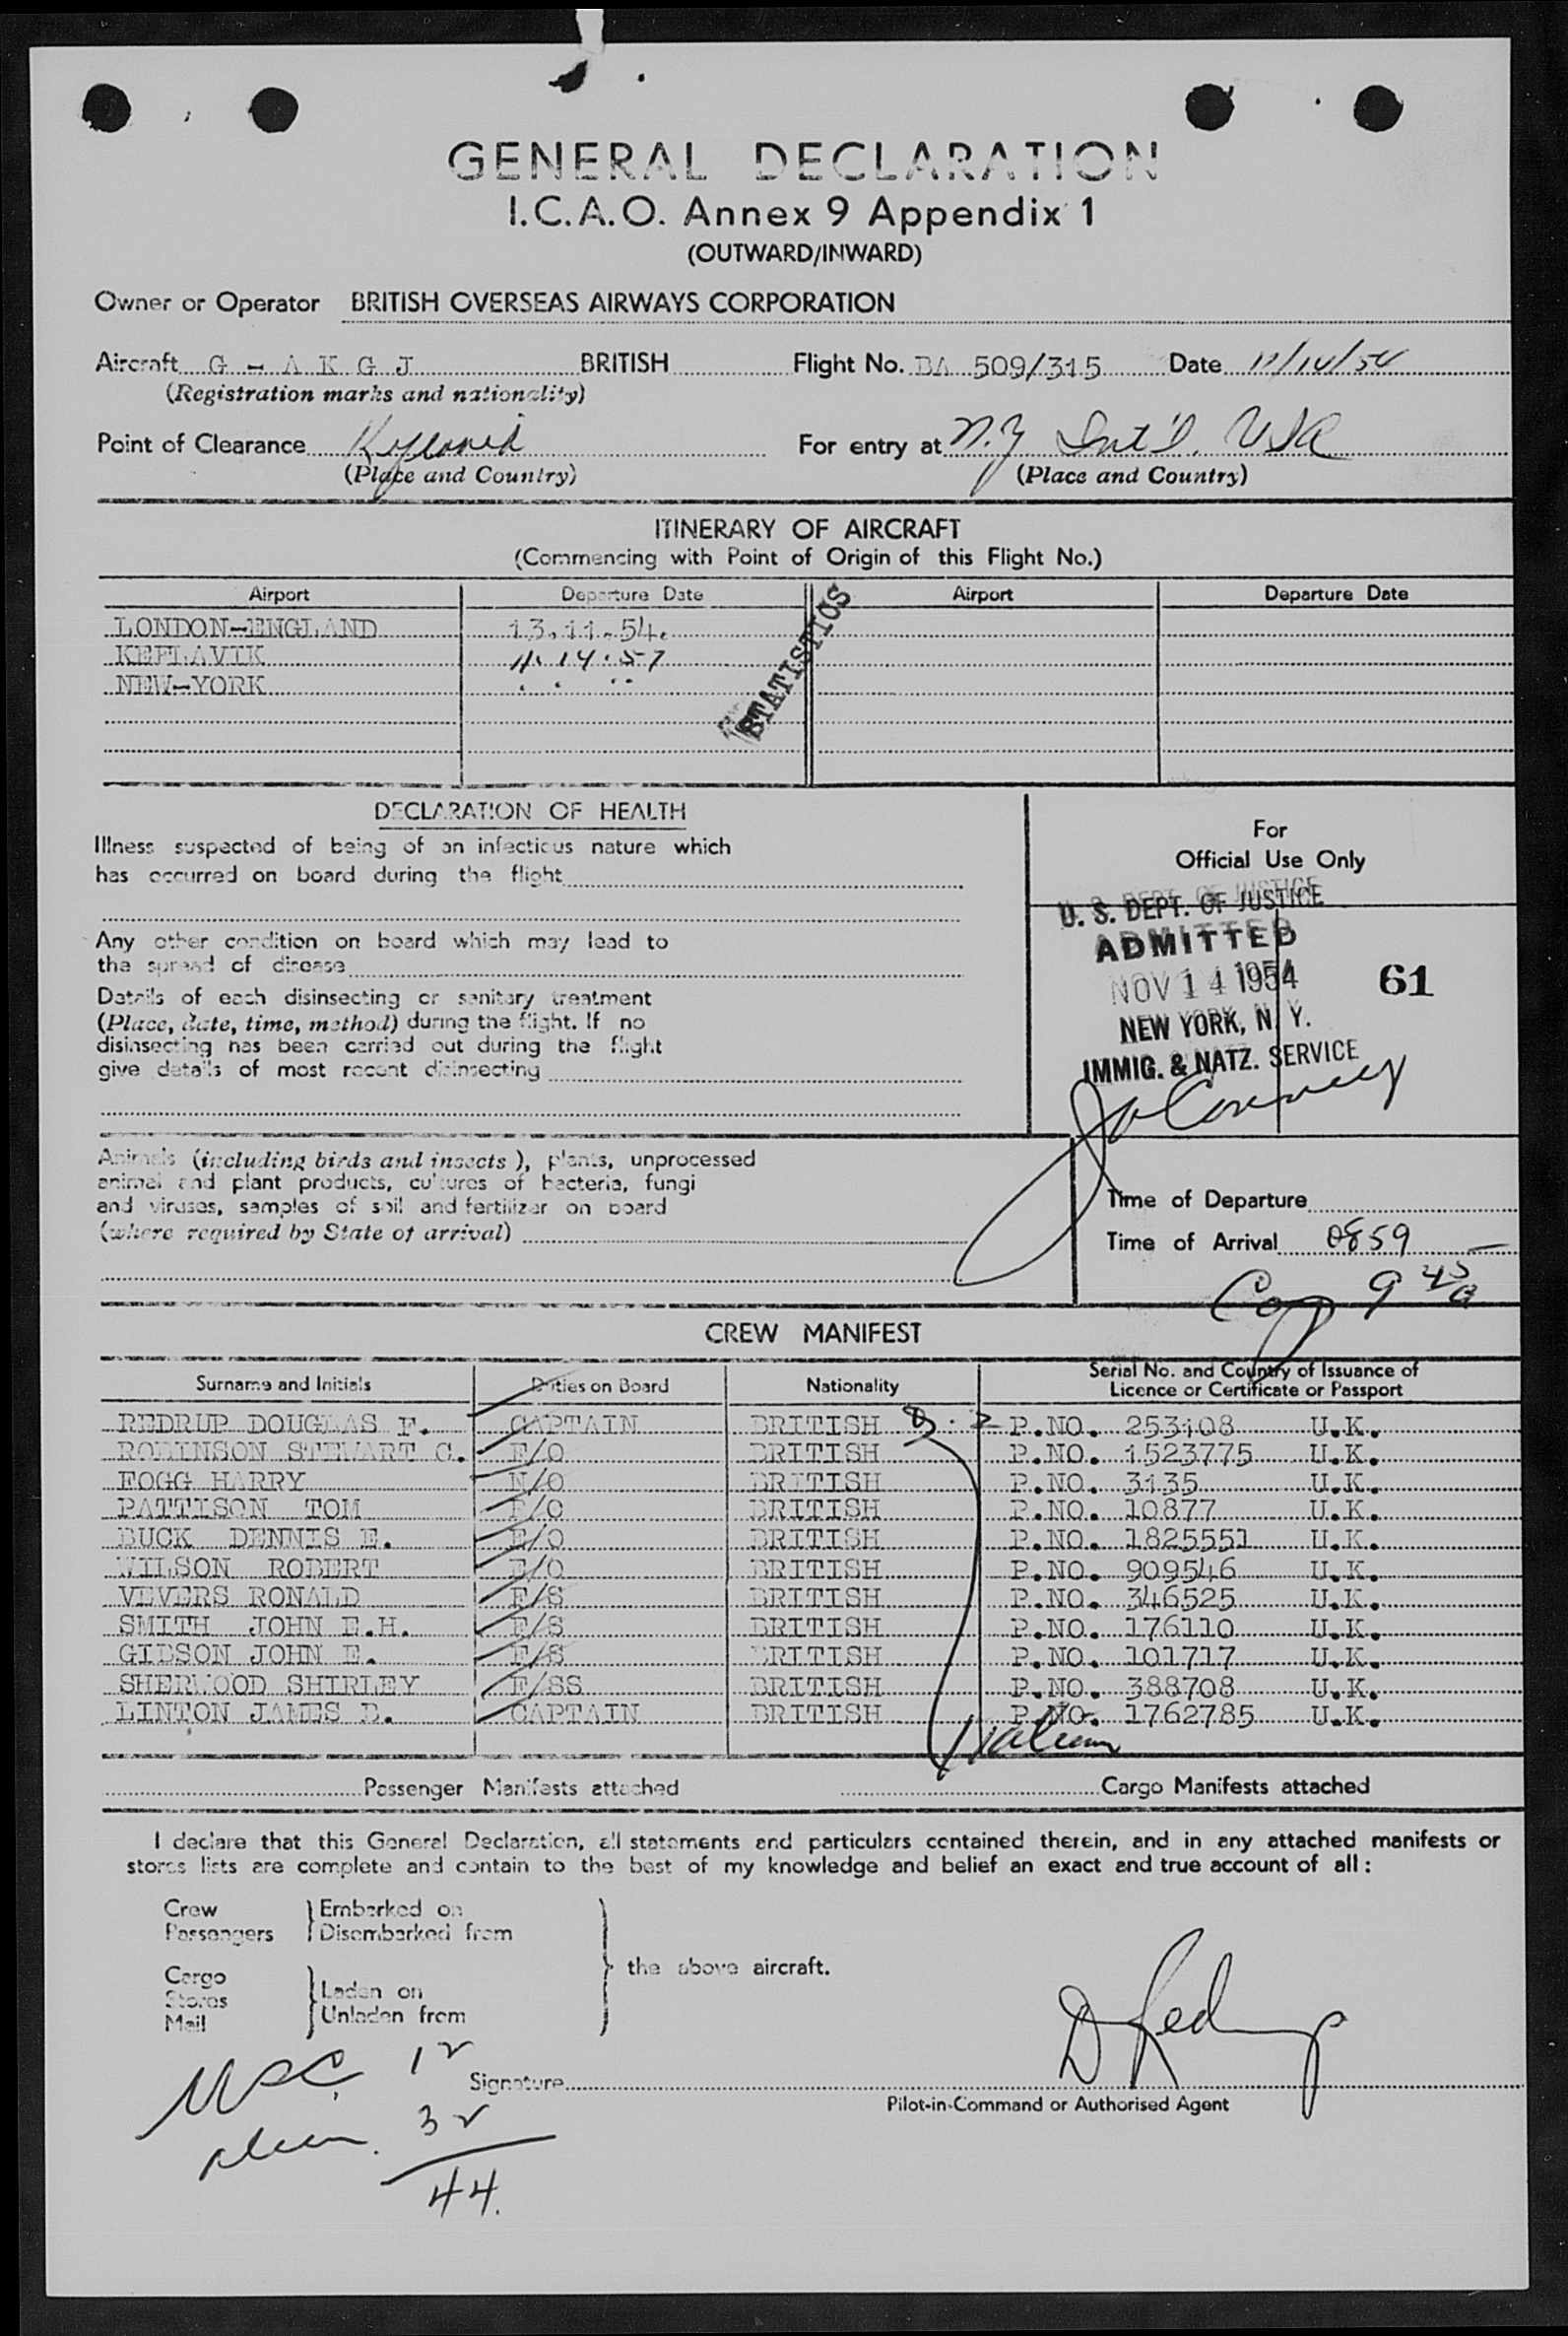 GENERAL DECLARATION
I.C.A.O. Annex 9 Appendix 1
(OUTWARD/INWARD)
Owner or Operator BRITISH OVERSEAS AIRWAYS CORPORATION
Aircraft G - A K G J BRITISH Flight No. BA 509/315 Date 11/14/54
(Registration marks and nationality)
Point of Clearance For entry at N.Y Int'l. USA
(Place and Country) (Place and Country)
ITINERARY OF AIRCRAFT
(Commencing with Point of Origin of this Flight No.)
Airport Departure Date Airport Departure Date
LONDON-ENGLAND 13.11.54.
KEFLAVIK
NEW-YORK
STATISTICS
DECLARATION OF HEALTH
Illness suspected of being of an infectious nature which
has occurred on board during the flight
Any other condition on board which may lead to
the spread of disease
Details of each disinsecting or sanitary treatment
(Place, date, time, method) during the flight. If no
disinsecting has been carried out during the flight
give details of most recent disinsecting
For
Official Use Only
U. S. DEPT. OF JUSTICE
ADMITTED
NOV 14 1954 61
NEW YORK, N. Y.
IMMIG. & NATZ. SERVICE
Animals (including birds and insects ), plants, unprocessed
animal and plant products, cultures of bacteria, fungi
and viruses, samples of soil and fertilizer on board
(where required by State of arrival)
Time of Departure
Time of Arrival 0859
9 45
CREW MANIFEST
Surname and Initials Duties on Board Nationality Serial No. and Country of Issuance of
Licence or Certificate or Passport
REDRUP DOUGLAS F. CAPTAIN BRITISH P.NO. 253108 U.K.
ROBINSON STEWART G. F/O BRITISH P.NO. 1523775 U.K.
FOGG HARRY N/O BRITISH P.NO. 3135 U.K.
PATTISON TOM BRITISH P.NO. 10877 U.K.
BUCK DENNIS E. E/O BRITISH P.NO. 1825551 U.K.
WILSON ROBERT E/O BRITISH P.NO. 909546 U.K.
VEVERS RONALD F/S BRITISH P.NO. 346525 U.K.
SMITH JOHN E.H. F/S BRITISH P.NO. 176110 U.K.
GIBSON JOHN E. F/S BRITISH P.NO. 101717 U.K.
SHERWOOD SHIRLEY F/SS BRITISH P.NO. 388708 U.K.
LINTON JAMES D. CAPTAIN BRITISH P.NO. 1762785 U.K.
Passenger Manifests attached Cargo Manifests attached
I declare that this General Declaration, all statements and particulars contained therein, and in any attached manifests or
stores lists are complete and contain to the best of my knowledge and belief an exact and true account of all :
Crew Embarked on
Passengers Disembarked from
the above aircraft.
Cargo
Stores Laden on
Mail Unladen from
USC 12
Signature D Redrup
Pilot-in-Command or Authorised Agent
alien. 32
44.